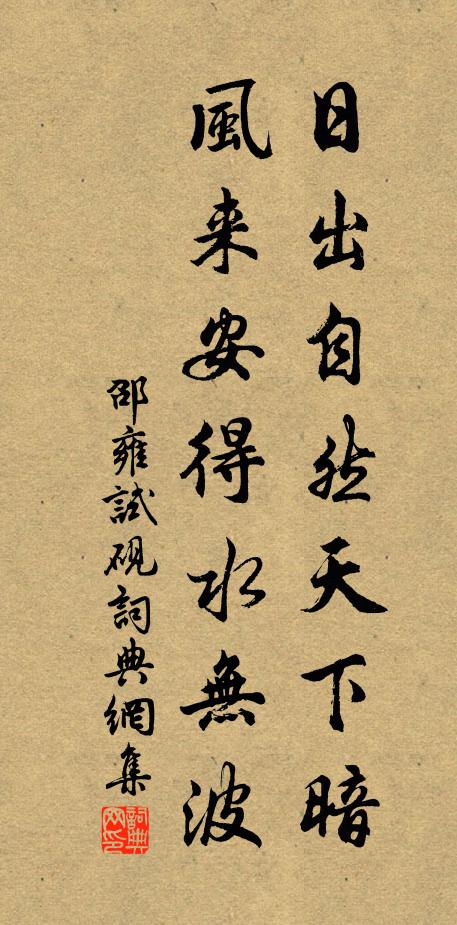 日出自然天下暗
風来安得水無波
邵雍試硯詞典網集
詞典網印